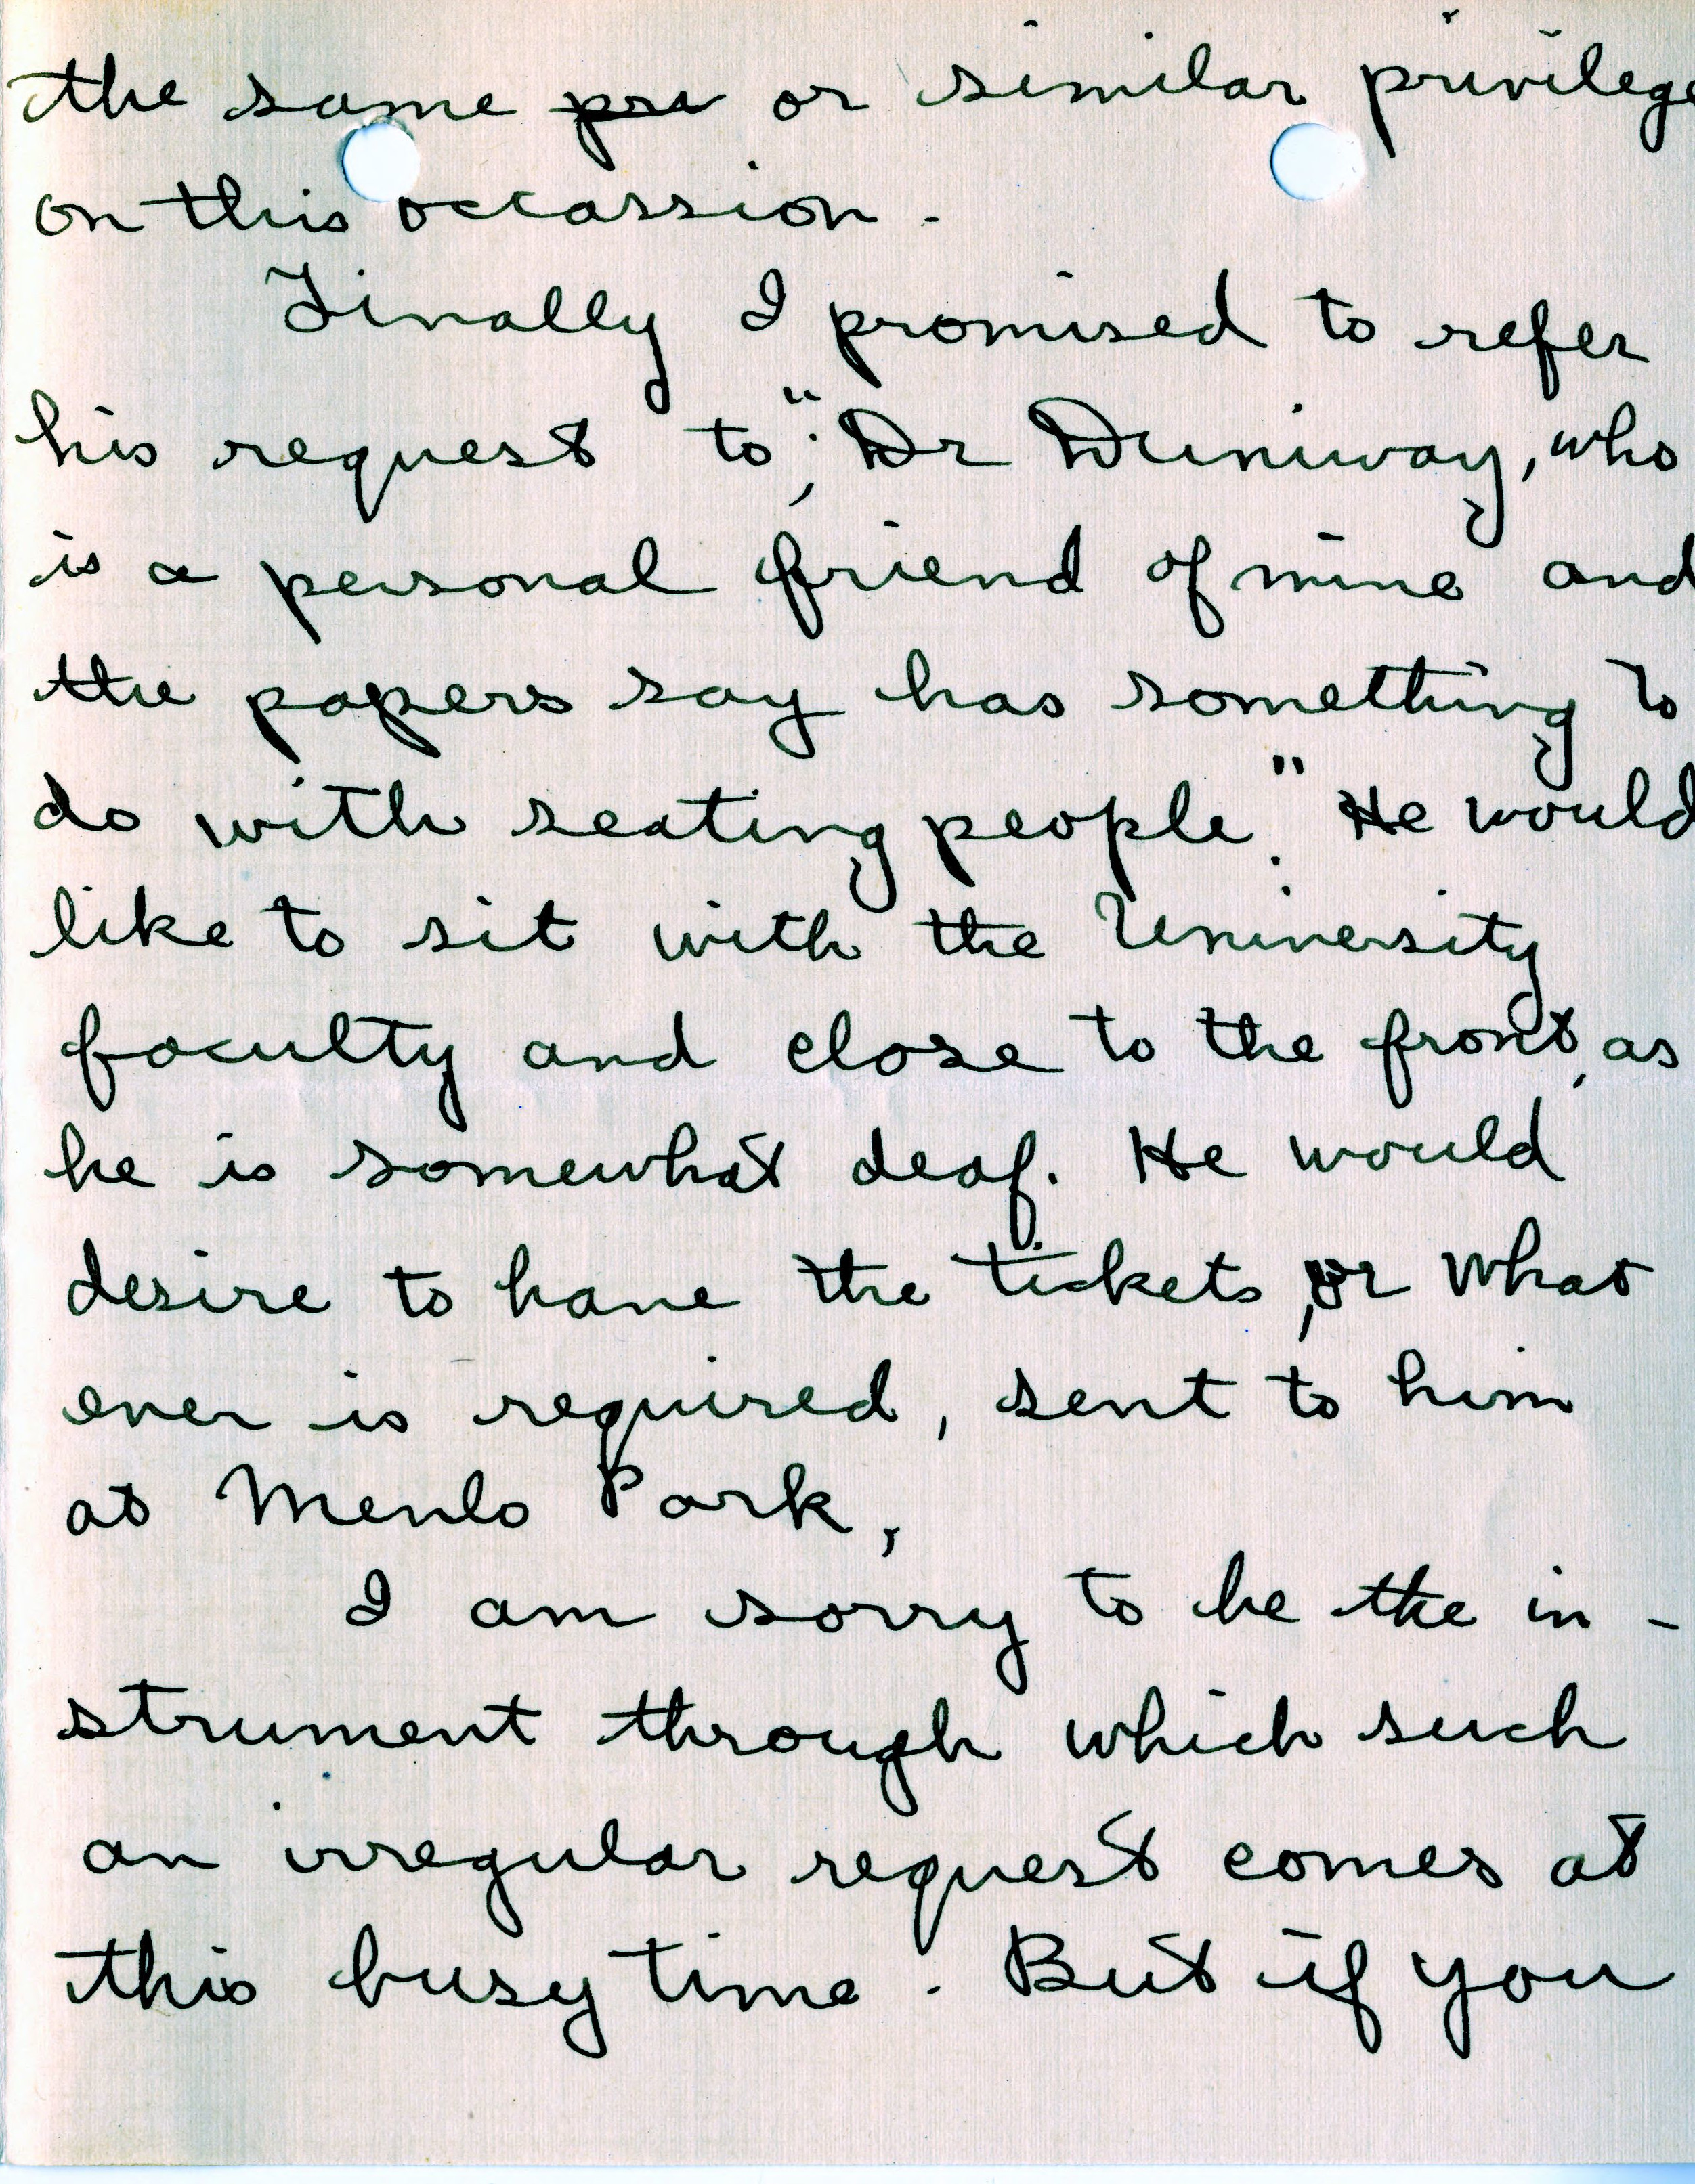 the same pri or similar privilege
on this occassion.
Finally I promised to refer
his request to, "Dr Duniway, who
is a personal friend of mine and
the papers say has something to
do with seating people." He would
like to sit with the University
faculty and close to the front, as
he is somewhat deaf. He would
desire to have the tickets, or what
ever is required, sent to him
at Menlo Park,
I am sorry to be the in-
strument through which such
an irregular request comes at
this busy time. But if you